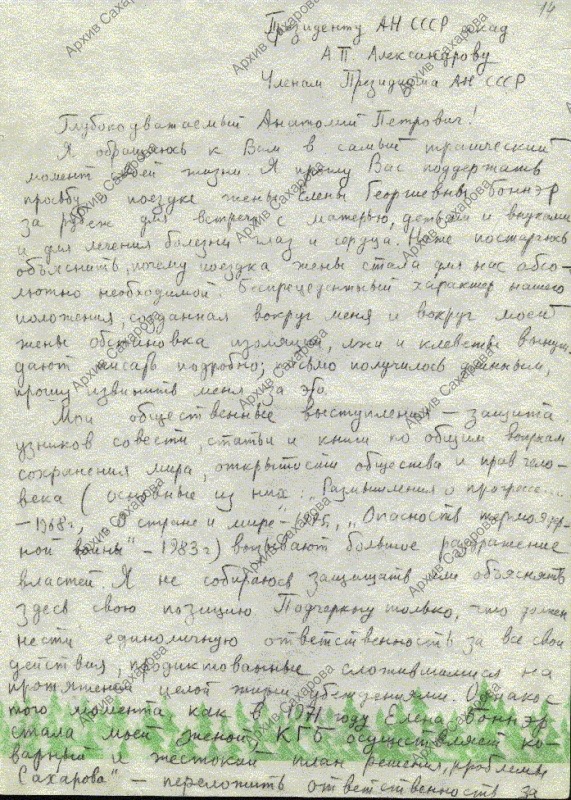 14
Президенту АН СССР акад
А П Александрову
Членам Президиума АН СССР
Глубокоуважаемый Анатолий Петрович!
Я обращаюсь к Вам в самый трагический
момент своей жизни. Я прошу Вас поддержать
просьбу о поездке жены Елены Георгиевны Боннэр
за рубеж для встречи с матерью, детьми и внуками
и для лечения болезни глаз и сердца. Ниже постараюсь
объяснить, почему поездка жены стала для нас абсо-
лютно необходимой. Беспрецедентный характер нашего
положения, созданная вокруг меня и вокруг моей
жены обстановка изоляции, лжи и клеветы вынуж-
дают писать подробно; письмо получилось длинным,
прошу извинить меня за это.
Мои общественные выступления – защита
узников совести, статьи и книги по общим вопросам
сохранения мира, открытости общества и прав чело-
века (основные из них: „Размышления о прогрессе...“
– 1968г, „О стране и мире“ – 1975, „Опасность термояд-
ной войны“ – 1983 г) вызывают большое раздражение
властей. Я не собираюсь защищать или объяснять
здесь свою позицию. Подчеркну только, что должен
нести единоличную ответственность за все свои
действия, продиктованные сложившимися на
протяжении целой жизни убеждениями. Однако с
того момента как в 1971 году Елена Боннэр
стала моей женой, КГБ осуществляет ко-
варный и жестокий план решения „проблемы
Сахарова“ – переложить ответственность за
Архив Сахарова